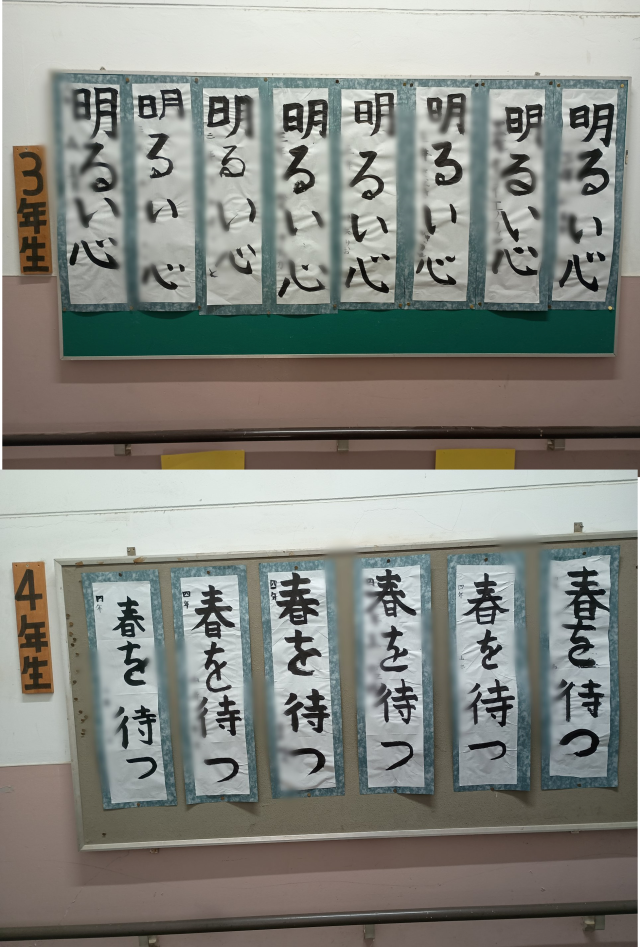 3年生
明るい心
明るい心
明るい心
明るい心
明るい心
明るい心
明るい心
明るい心
4年生
四年
春を待つ
四年
春を待つ
四年
春を待つ
春を待つ
四年
春を待つ
春を待つ